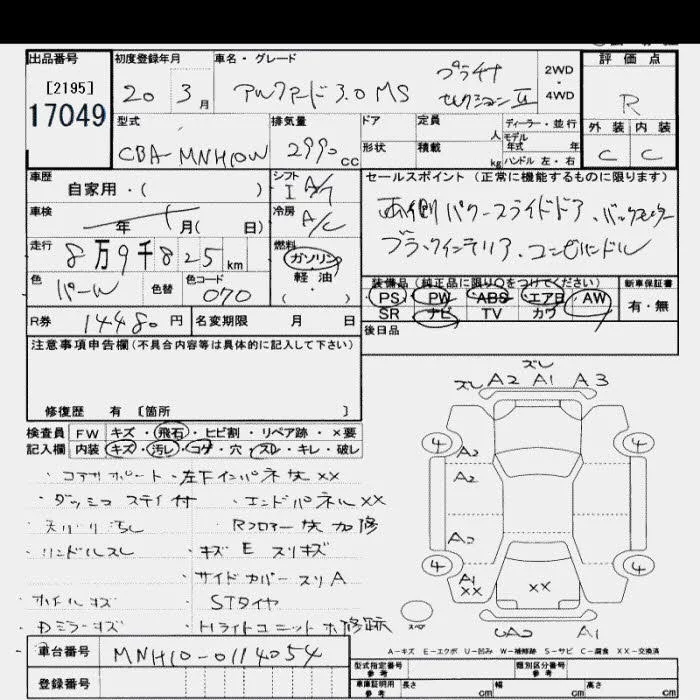 出品番号 初度登録年月 車名・グレード 評価点
[2195]
17049
20 3月 アルファード3.0 MS プラチナ セレクションII 2WD・4WD R
型式 排気量 ドア 定員 人 ディーラー・並行 外装 内装
CBA-MNH10W 2990cc 形状 積載 kg モデル年式 年 ハンドル 左・右 C C
車歴 自家用・( ) シフト I A/T セールスポイント (正常に機能するものに限ります)
車検 年 月( 日) 冷房 A/C 両側パワースライドドア、バックモニター
走行 8万9千825km 燃料 ガソリン 軽油 ( ・ ) ブラックインテリア、コンビハンドル
色 パール 色替 色コード 070 装備品 (純正品に限り○をつけてください) 新車保証書
PS PW ABS エアB AW 有・無
SR ナビ TV カワ
R券 14480円 名変期限 月 日 後日品
注意事項申告欄(不具合内容等は具体的に記入して下さい)
修復歴 有 [箇所 ]
検査員 FW キズ・飛石・ヒビ割・リペア跡・×要
記入欄 内装 キズ・汚レ・コゲ・穴・スレ・キレ・破レ
ズレ
ズレ A2 A1 A3
4 4
A2
A2
A2
4 4
A1
XX XX
UA2 A1
・コアサポート・左下インパネ XX
・ダッシュ ステイ付 ・エンドパネル XX
汚レ Rフロアー 加修
・ハンドルスレ ・キズ E スリキズ
・サイドカバー スリ A
・ホイールキズ ・STタイヤ
・Dミラーキズ ・Hライトユニット 補修跡
スペア
A-キズ E-エクボ U-凹み W-補修跡 S-サビ C-腐食 XX-交換済
車台番号 MNH10-0114054
型式指定番号 参考 類別区分番号 参考
登録番号 車庫証明用 参考 長さ cm 幅 cm 高さ cm